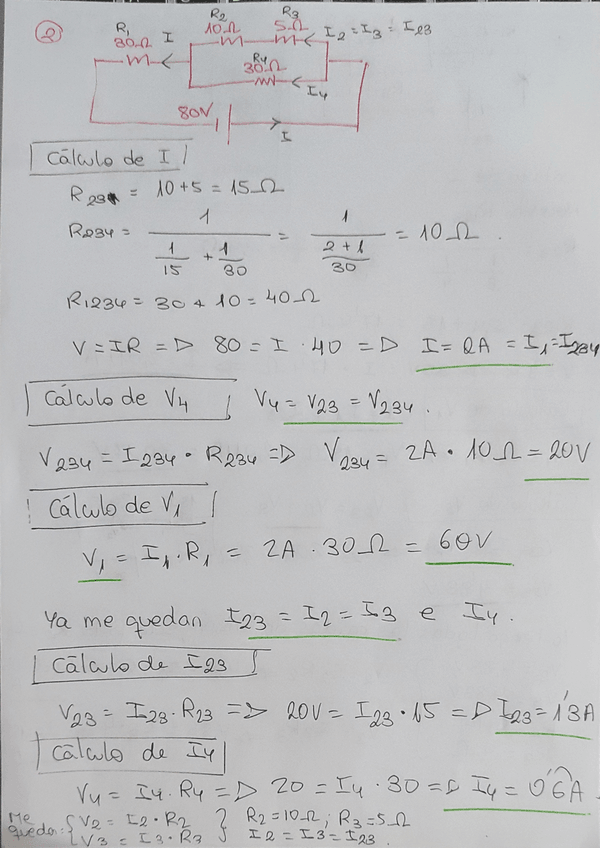 2
R1 30Ω I R2 10Ω R3 5Ω I2 = I3 = I23
R4 30Ω I4
80V I
Cálculo de I
R23 = 10+5 = 15Ω
R234 = 1 / (1/15 + 1/30) = 1 / ((2+1)/30) = 10Ω.
R1234 = 30 + 10 = 40Ω
V = IR => 80 = I · 40 => I = 2A = I1 = I234
Cálculo de V4 V4 = V23 = V234.
V234 = I234 · R234 => V234 = 2A · 10Ω = 20V
Cálculo de V1
V1 = I1 · R1 = 2A · 30Ω = 60V
Ya me quedan I23 = I2 = I3 e I4.
Cálculo de I23
V23 = I23 · R23 => 20V = I23 · 15 => I23 = 1'3A
Cálculo de I4
V4 = I4 · R4 => 20 = I4 · 30 => I4 = 0'6A
Me quedan: { V2 = I2 · R2 } R2 = 10Ω ; R3 = 5Ω
V3 = I3 · R3 I2 = I3 = I23.